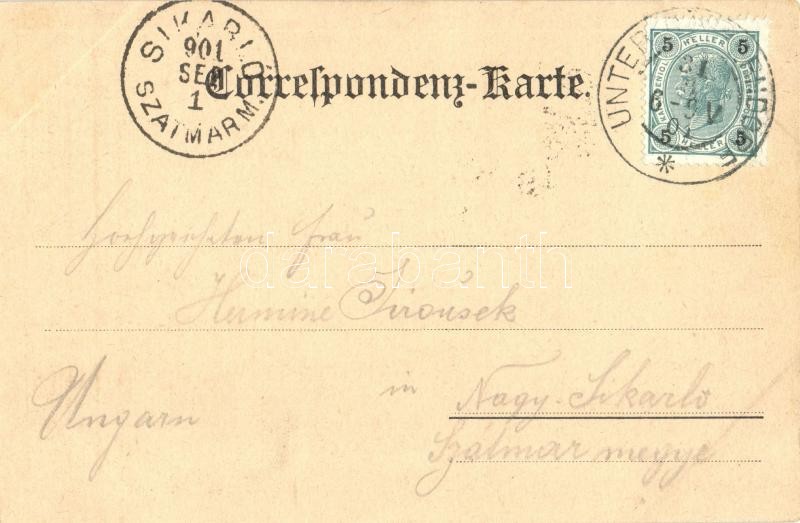 SIKARLÓ
901
SEP
1
SZATMÁR M.
Correspondenz-Karte.
5 HELLER 5
5 HELLER 5
UNTER
Frau
darabanth
Hermine Jirousek
in Nagy-Sikarló
Ungarn
Szatmár megye